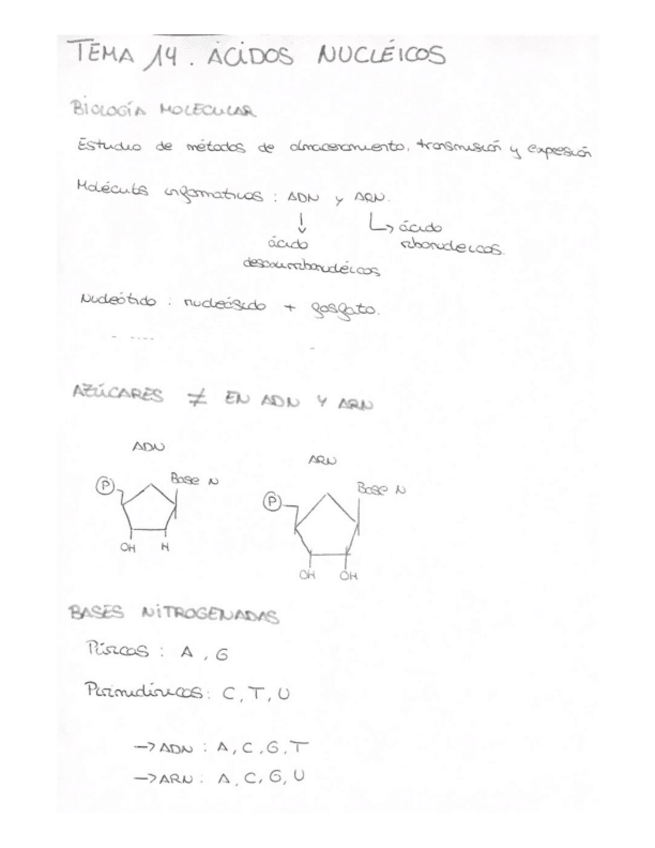 TEMA 14. ÁCIDOS NUCLÉICOS
BIOLOGÍA MOLECULAR
Estudio de métodos de almacenamiento, transmisión y expresión
Moléculas informativas : ADN y ARN.
ácido
ribonucleicos.
ácido
desoxirribonucléicos
Nucleótido : nucleósido + fosfato.
AZÚCARES ≠ EN ADN Y ARN
ADN
ARN
P Base N
P Base N
OH H
OH OH
BASES NITROGENADAS
Púricas : A, G
Pirimidínicas : C, T, U
→ ADN : A, C, G, T
→ ARN : A, C, G, U